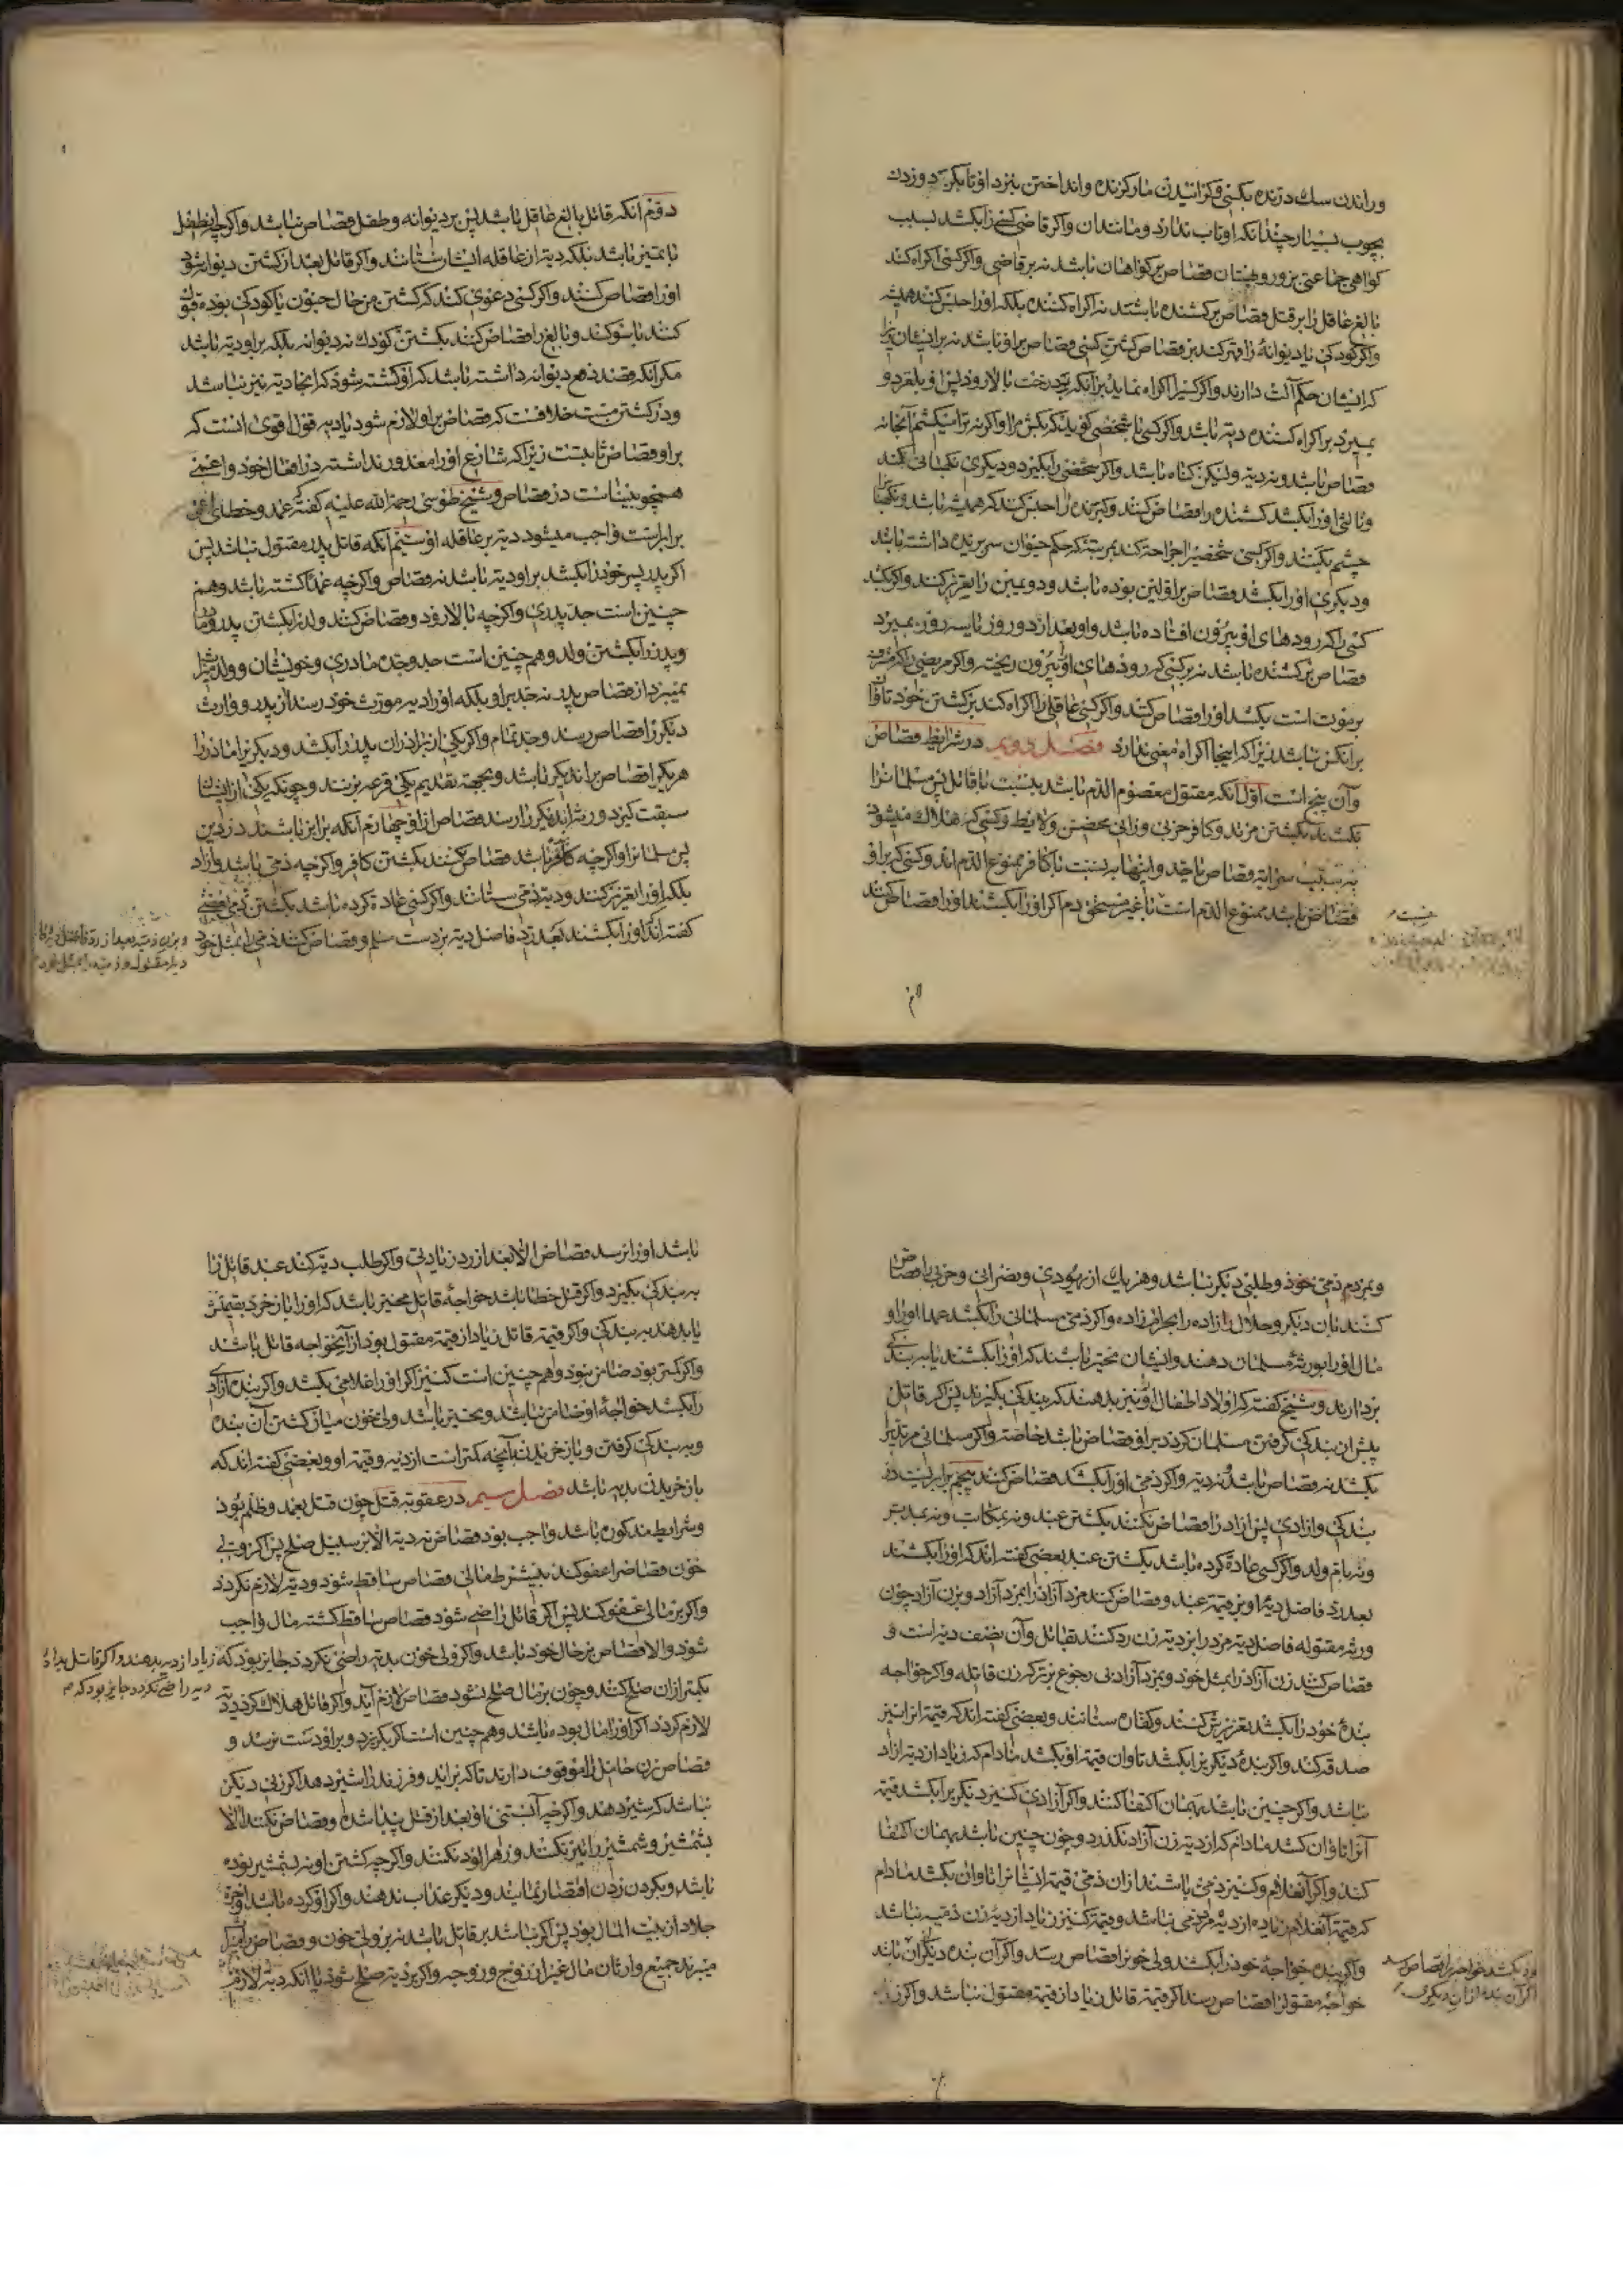 و راندن سك درنده بكسی و كزانیدن مار كزنده و انداختن بنزد او تا بكزد و زدن
بچوب بسیار چندانكه او تاب ندارد و مانند ان و اكر قاضی كسی را بكشد بسبب
كواهی جماعتی بزور و بهتان قصاص بر كواهان باشد نه بر قاضی و اكر كسی اكراه كند
بالغ عاقل را بر قتل قصاص بر كشنده باشد نه اكراه كننده بلكه او را حبس كنند همیشه
و اكر كودكی یا دیوانهٔ را قتر كند بر قصاص كشتن كسی قصاص بر او باشد نه بر ایشان زیرا
كه ایشان حكم آلت دارند و اكر كسیرا اكراه نماید بر انكه بر درخت بالا رود پس او بلغزد و
بمیرد بر اكراه كننده دیه باشد و اكر كسی با شخصی كوید كه بكش مرا و اكر نه ترا میكشم آنجا نه
قصاص باشد و نه دیه ولیكن كناه باشد و اكر شخصی را بكیرد و دیكری نكهبانی كند
و ثالثی او را بكشد كشنده را قصاص كنند و كیرنده را حبس كنند كه همیشه باشد و نكهبانرا
چشم بكنند و اكر كسی شخصیرا جراحت كند بمرتبهٔ كه حكم حیوان سر بریده داشته باشد
و دیكری او را بكشد قصاص بر اولین بوده باشد و دویمین را تعزیر كنند و اكر بكشد
كسی را كه رودهای او بیرون افتاده باشد و او بعد از دو روز یا سه روز بمیرد
قصاص بر كشنده باشد نه بر كسی كه رودهای او بیرون ریخته و اكر مریضی را كه مشرف
بر موت است بكشد او را قصاص كنند و اكر كسی عاقلی را اكراه كند بر كشتن خود تاوان
بر انكس نباشد زیرا كه اینجا اكراه معنی ندارد فصل دویم در شرایط قصاص
و آن پنج است اول انكه مقتول معصوم الدم باشد بنسبت با قاتل پس مسلمانرا
نكشند بكشتن مرتد و كافر حربی و زانی محصن و لایط و كسی كه هلاك میشود
به سبب سرایت قصاص یا حد و اینها به نسبت با كافر ممنوع الدم اند و كسی كه بر او
قصاص باشد ممنوع الدم است با غیر مستحق دم اكر او را بكشند او را قصاص كنند
دوم انكه قاتل بالغ عاقل باشد پس بر دیوانه و طفل قصاص نباشد و اكر چه طفل
با تمیز باشد بلكه دیه از عاقله ایشان ستانند و اكر قاتل بعد از كشتن دیوانه شود
او را قصاص كنند و اكر كسی دعوی كند كه كشتن من حال جنون یا كودكی بوده قبول
كنند با سوكند و بالغ را قصاص كنند بكشتن كودك نه دیوانه بلكه بر او دیه باشد
مكر انكه قصد دفع دیوانه داشته باشد كه او كشته شود كه انجا دیه نیز نباشد
و در كشتن مست خلافست كه قصاص بر او لازم شود یا دیه قول اقوی انست كه
بر او قصاص ثابتست زیرا كه شارع او را معذور نداشته در افعال خود و اعمی
همچو بیناست در قصاص و شیخ طوسی رحمة الله علیه كفته كه عمد و خطای اعمی
برابر است واجب میشود دیه بر عاقله او سیم آنكه قاتل پدر مقتول نباشد پس
اكر پدر پسر خود را بكشد بر او دیه باشد نه قصاص و اكر چه عمدا كشته باشد و هم
چنین است جد پدری و اكر چه بالا رود و قصاص كنند ولد را بكشتن پدر و مادر
و پدر را بكشتن ولد و هم چنین است جد و جده مادری و خویشان و ولد میراث
نمیبرد از قصاص پدر نه جد بر او بلكه او را دیه موزث خود رسد از پدر و وارث
دیكر را قصاص رسد و حد تمام و اكر یكی از برادران پدر را بكشد و دیكر برا مادر را
هر یكرا قصاص بر ان دیكر باشد و بجهة تقدیم یكی قرعه بزنند و چونكه یكی از ایشان
سبقت كیرد ورثه ان دیكر را رسد قصاص از او چهارم آنكه برابر باشند در دین
پس مسلمانرا و اكر چه كافر باشد قصاص نكنند بكشتن كافر و اكر چه ذمی باشد و آزاد
بلكه او را تعزیر كنند و دیه ذمی ستانند و اكر كسی عادة كرده باشد بكشتن ذمی بعضی
كفته اند كه او را بكشند بعد رد فاضل دیه بر دست سلم و قصاص كنند ذمی را بمثل خود
و بمردم ذمی خود و طلبی دیكر نباشد و هر یك از یهودی و نصرانی و حربی را قصاص
كنند بان دیكر و حلال زاده را بحرام زاده و اكر ذمی مسلمانی را بكشد عمدا او را و
مال او را بورثهٔ مسلمان دهند و ایشان مخیر باشند كه او را بكشند یا به بندكی
بردارند و شیخ كفته كه اولاد اطفال او نیز بدهند كه ببندكی بكیرند پس اكر قاتل
پیش از بندكی كرفتن مسلمان كردد بر او قصاص باشد خاصة و اكر مسلمانی مرتدیرا
بكشد نه قصاص باشد و نه دیه و اكر ذمی او را بكشد قصاص كنند پنجم برابریست در
بندكی و ازادی پس ازاد را قصاص نكنند بكشتن عبد و نه بمكاتب و نه بمدبر
و نه بام ولد و اكر كسی عادة كرده باشد بكشتن عبد بعضی كفته اند كه او را بكشند
بعد رد فاضل دیهٔ او بر قیمة عبد و قصاص كنند مرد آزاد را بمرد آزاد و بزن آزاد چون
ورثه مقتوله فاضل دیه مرد را بر دیه زن رد كنند بقاتل و آن نصف دیه است و
قصاص كنند زن آزاد را بمثل خود و بمرد آزاد بی رجوع بتركه زن قاتله و اكر خواجه
بندهٔ خود را بكشد تعزیرش كنند و كفاره ستانند و بعضی كفته اند كه قیمة انرا نیز
صدقه كند و اكر بندهٔ دیكریرا بكشد تاوان قیمة او بكشد مادام كه زیاد از دیه ازاد
نباشد و اكر چنین باشد بهمان اكتفا كنند و اكر آزادی كنیز دیكریرا بكشد قیمة
آنرا تاوان كشد مادام كه از دیه زن آزاد نكذرد و چون چنین باشد بهمان اكتفا
كند و اكر آنغلام و كنیز ذمی باشند از ان ذمی قیمة ایشانرا تاوان بكشد مادام
كه قیمة آنغلام زیاده از دیهٔ مرد ذمی نباشد و قیمة كنیز زیاد از دیه زن ذمیه نباشد
و اكر بنده خواجهٔ خود را بكشد ولی خونرا قصاص رسد و اكر آن بنده دیكران باشد
خواجهٔ مقتول را قصاص رسد اكر قیمة قاتل زیاد از قیمة مقتول نباشد و اكر زیاد
باشد او را نرسد قصاص الا بعد از رد زیادتی و اكر طلب دیه كند عبد قاتل را
به بندكی بكیرد و اكر قتل خطا باشد خواجهٔ قاتل مخیر باشد كه او را باز خرد بقیمتش
یا بدهند به بندكی و اكر قیمة قاتل زیاد از قیمة مقتول بود از آنخواجه قاتل باشد
و اكر كمتر بود ضامن نبود و هم چنین است كنیز اكر او را غلامی بكشد و اكر بنده آزادی
را بكشد خواجهٔ او ضامن نباشد و مخیر باشد ولی خون میان كشتن آن بنده
و به بندكی كرفتن و باز خریدن بآنچه كمتر است از دیه و قیمة او و بعضی كفته اند كه
باز خریدن بدیه باشد فصل سیم در عقوبة قتل چون قتل بعمد و ظلم بود
و شرایط مذكوره باشد واجب بود قصاص نه دیه الا بر سبیل صلح پس اكر ولی
خون قصاصرا عفو كند بیشرط مالی قصاص ساقط شود و دیه لازم نكردد
و اكر بر مالی عفو كند پس اكر قاتل راضی شود قصاص ساقط كشته مال واجب
شود و الا قصاص بر حال خود باشد و اكر ولی خون بدیه راضی نكردد جایز بود كه زیاد از دیه بدهند و اكر قاتل بدادن
دیه راضی نكردد جایز بود كه
بكمتر از ان صلح كنند و چون بر مال صلح نشود قصاص لازم آید و اكر قاتل هلاك كردد دیه
لازم كردد اكر او را مال بوده باشد و هم چنین است اكر بكریزد و بر او دست نرسد و
قصاص زن حامل را موقوف دارند تا كه بزاید و فرزند را شیر دهد اكر زنی دیكر
نباشد كه شیر دهد و اكر چه آبستنی او بعد از قتل پیدا شده و قصاص نكنند الا
بشمشیر و شمشیر را تیز نكنند و زهر الود نكنند و اكر چه كشتن او نه بشمشیر بوده
باشد و بكردن زدن اقتصار نمایند و دیكر عذاب ندهند و اكر او كرده باشد و اجرة
جلاد از بیت المال بود پس اكر نباشد بر قاتل باشد نه بر ولی خون و قصاص را میراث
میبرند جمیع وارثان مال غیر از زوج و زوجه و اكر بر دیه صلح شود یا انكه دیه لازم